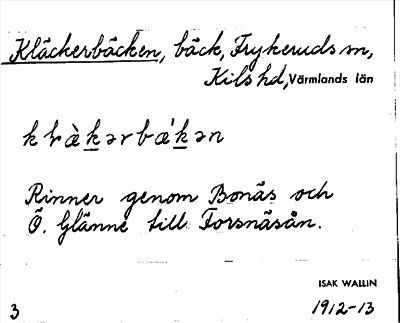 Kläckerbäcken, bäck, Frykeruds sn,
Kils hd, Värmlands län
kḷæ̀k̲ərbæ'k̲ən
Rinner genom Bonäs och
Ö. Glänne till Forsnäsån.
ISAK WALLIN
3 1912-13